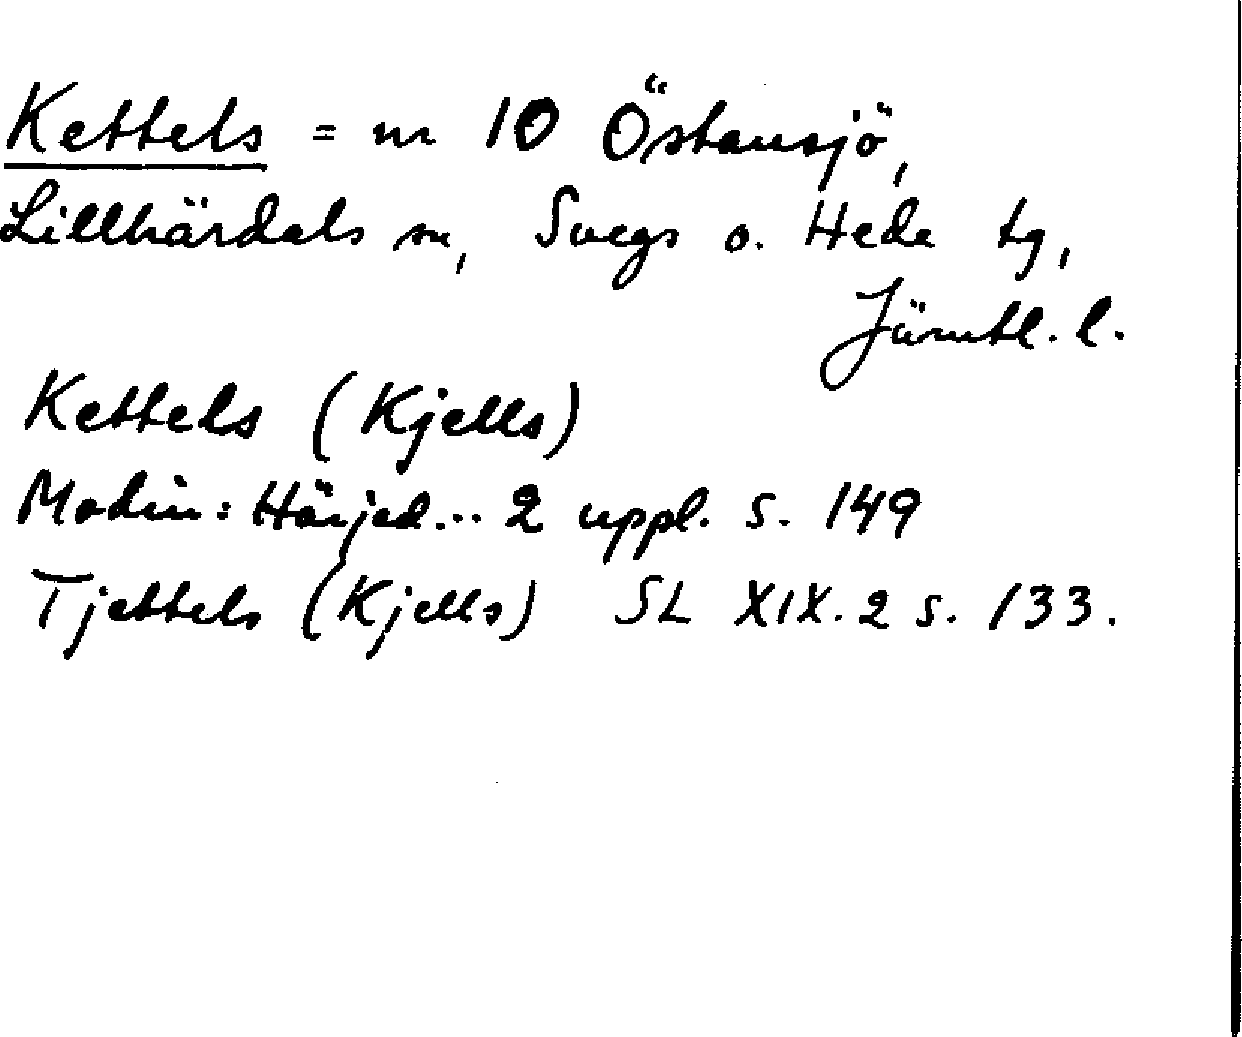 Kettels = nr 10 Östansjö,
Lillhärdals sn, Svegs o. Hede tg,
Jämtl. l.
Kettels (Kjells)
Modin: Härjed... 2 uppl. s. 149
Tjettels (Kjells) SL XIX.2 s. 133.